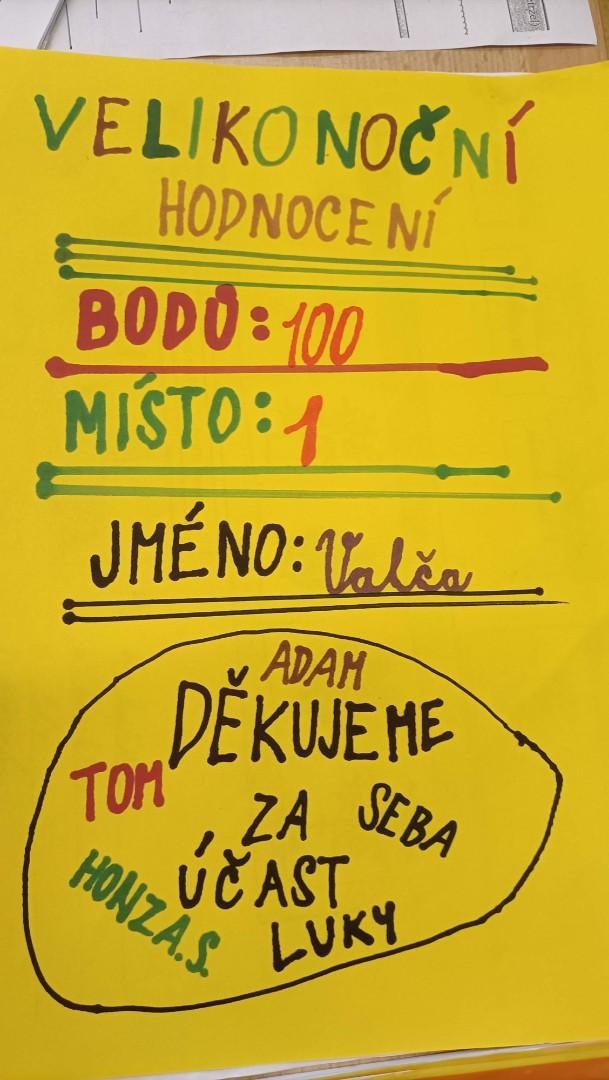 VELIKONOČNÍ
HODNOCENÍ
BODŮ: 100
MÍSTO: 1
JMÉNO: Valča
ADAM
DĚKUJEME
TOM
ZA
SEBA
ÚČAST
HONZA.S.
LUKY